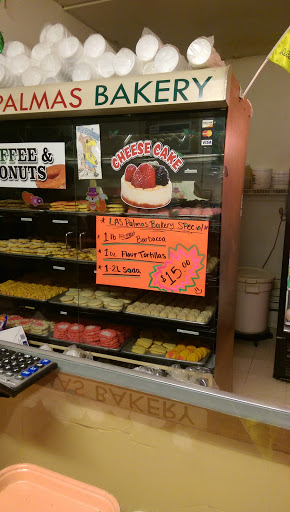 PALMAS BAKERY
MasterCard
VISA
FFEE &
ONUTS
CHEESE CAKE
* LAS Palmas Bakery Special
* 1 lb Barbacoa
* 1 Dz. Flour Tortillas
* 1-2L Soda
$15.00
BAKERY